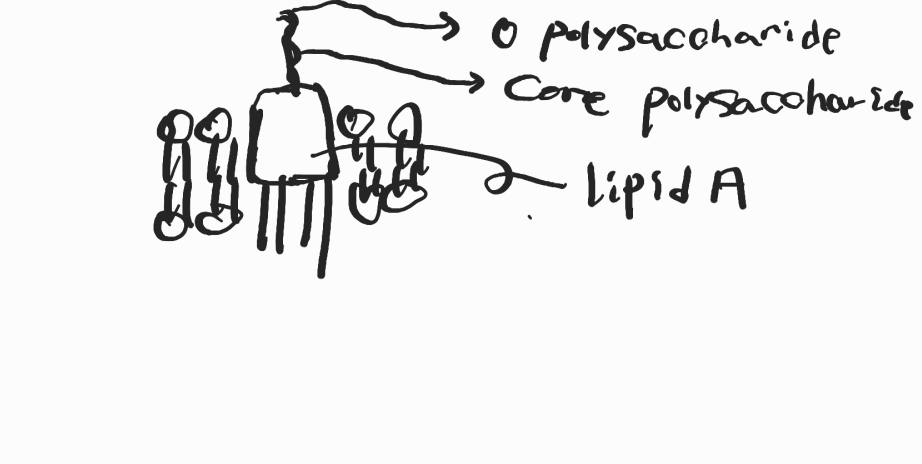 O polysaccharide
Core polysaccharide
Lipid A